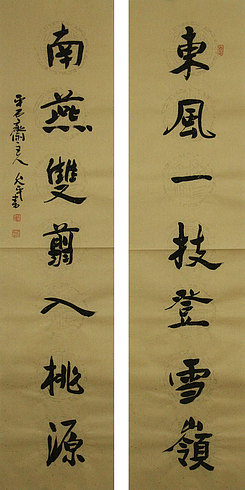 東風一技登雪嶺
南燕雙剪入桃源